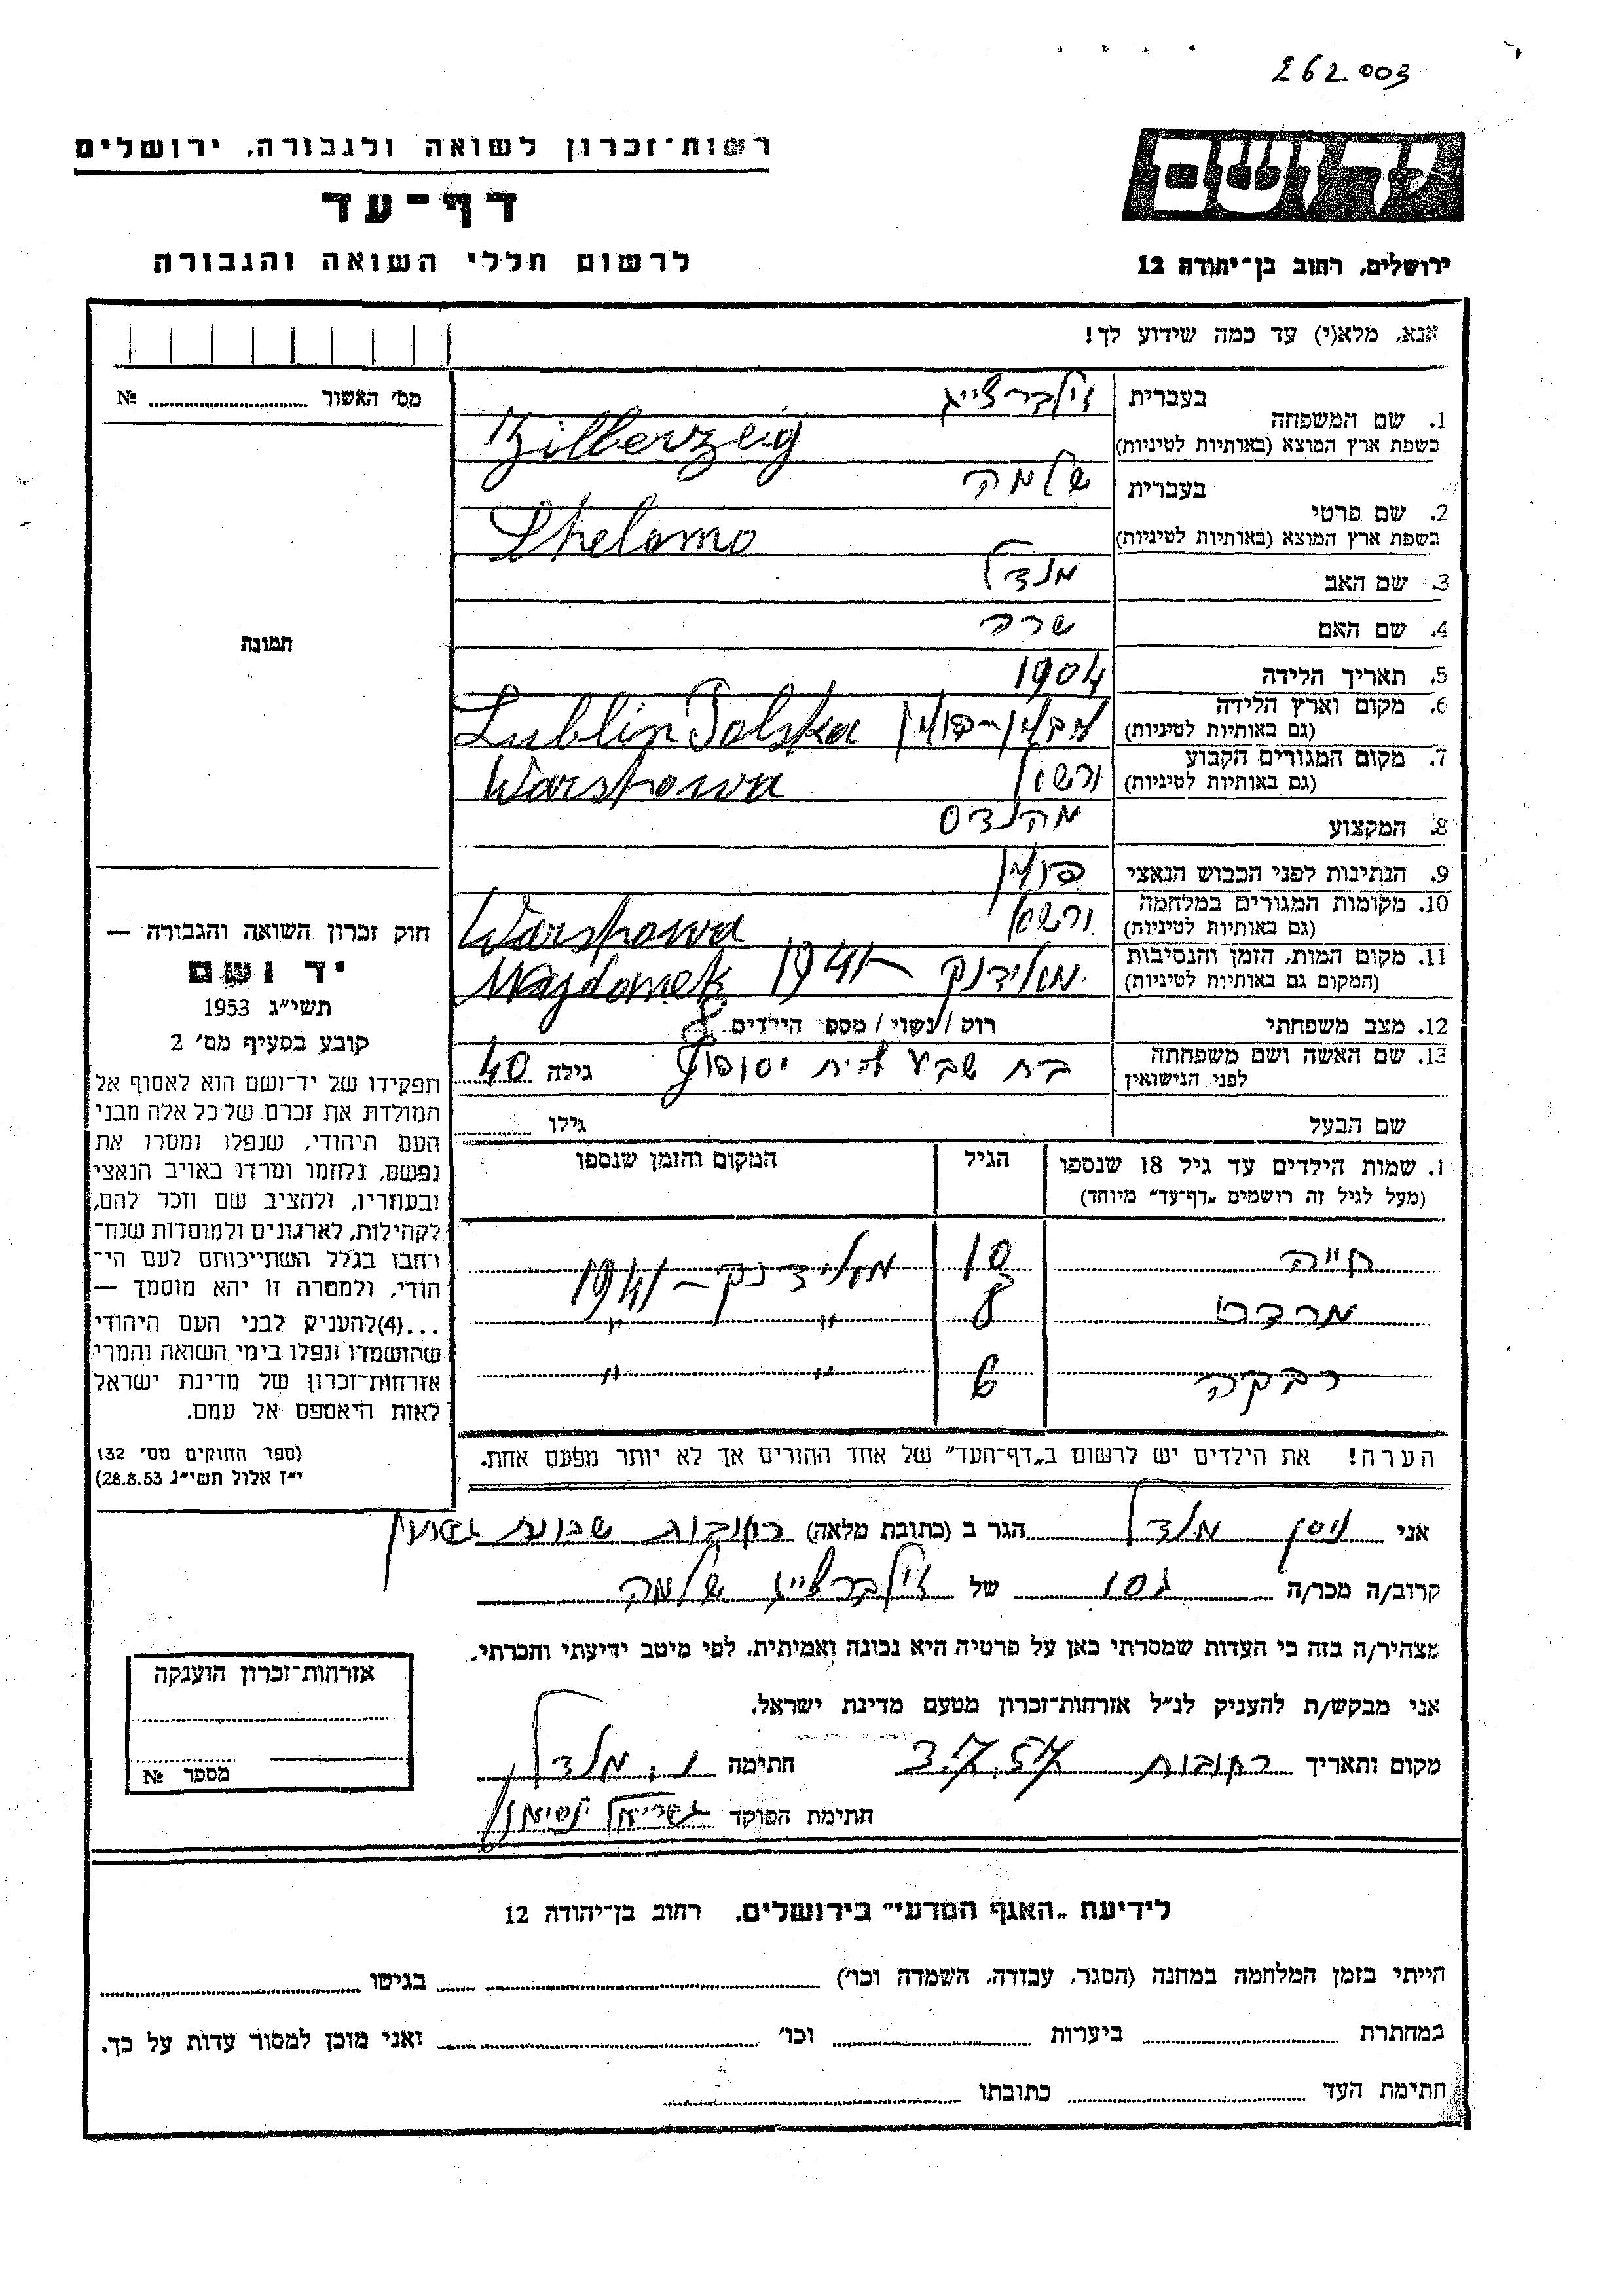 262.003
רשות־זכרון לשואה ולגבורה, ירושלים
דף־עד
לרשום חללי השואה והגבורה
יד ושם
ירושלים, רחוב בן־יהודה 12
אנא, מלא(י) עד כמה שידוע לך!
מס' האשור № 
1. שם המשפחה בעברית זילברצייג
בשפת ארץ המוצא (באותיות לטיניות) Zilberzeig
2. שם פרטי בעברית שלמה
בשפת ארץ המוצא (באותיות לטיניות) Shelomo
3. שם האב מנדל
4. שם האם שרה
5. תאריך הלידה 1904
6. מקום וארץ הלידה (גם באותיות לטיניות) לובלין-פולין Lublin Polska
7. מקום המגורים הקבוע (גם באותיות לטיניות) ורשה Warshowa
8. המקצוע מהנדס
9. הנתינות לפני הכבוש הנאצי פולין
10. מקומות המגורים במלחמה (גם באותיות לטיניות) ורשה Warshowa
11. מקום המות, הזמן והנסיבות (המקום גם באותיות לטיניות) מאידנק - 1941 Majdanek
12. מצב משפחתי רוק / נשוי / מספר הילדים
13. שם האשה ושם משפחתה לפני הנישואין בת שבע לבית גילה 40
שם הבעל גילו
שמות הילדים עד גיל 18 שנספו הגיל המקום והזמן שנספו
(מעל לגיל זה רושמים „דף־עד" מיוחד)
חייה 10 מאידנק - 1941
מרדכי 8 " "
רבקה 6 " "
הערה! את הילדים יש לרשום ב„דף־העד" של אחד ההורים אך לא יותר מפעם אחת.
תמונה
חוק זכרון השואה והגבורה —
יד ושם
תשי"ג 1953
קובע בסעיף מס' 2
תפקידו של יד־ושם הוא לאסוף אל
המולדת את זכרם של כל אלה מבני
העם היהודי, שנפלו ומסרו את
נפשם, נלחמו ומרדו באויב הנאצי
ובעוזריו, ולהציב שם וזכר להם,
לקהילות, לארגונים ולמוסדות שנח־
רחבו בגלל השתייכותם לעם הי־
הודי, ולמטרה זו יהא מוסמך —
...(4)להעניק לבני העם היהודי
שהושמדו ונפלו בימי השואה והמרי
אזרחות־זכרון של מדינת ישראל
לאות היאספם אל עמם.
(ספר החוקים מס' 132
י"ז אלול תשי"ג 28.8.53)
אני ניסן מנדל הגר ב (כתובת מלאה) רחובות שכונת
קרוב/ה מכר/ה גסו של זילברצייג שלמה
מצהיר/ה בזה כי העדות שמסרתי כאן על פרטיה היא נכונה ואמיתית, לפי מיטב ידיעתי והכרתי.
אני מבקש/ת להעניק לנ"ל אזרחות־זכרון מטעם מדינת ישראל.
מקום ותאריך רחובות 3.7.57 חתימה נ. מנדל
חתימת הפוקד
אזרחות־זכרון הוענקה
מספר №
לידיעת „האגף המדעי" בירושלים, רחוב בן־יהודה 12
הייתי בזמן המלחמה במחנה (הסגר, עבודה, השמדה וכו') בגיטו
במחתרת ביערות וכו' ואני מוכן למסור עדות על כך.
חתימת העד כתובתו